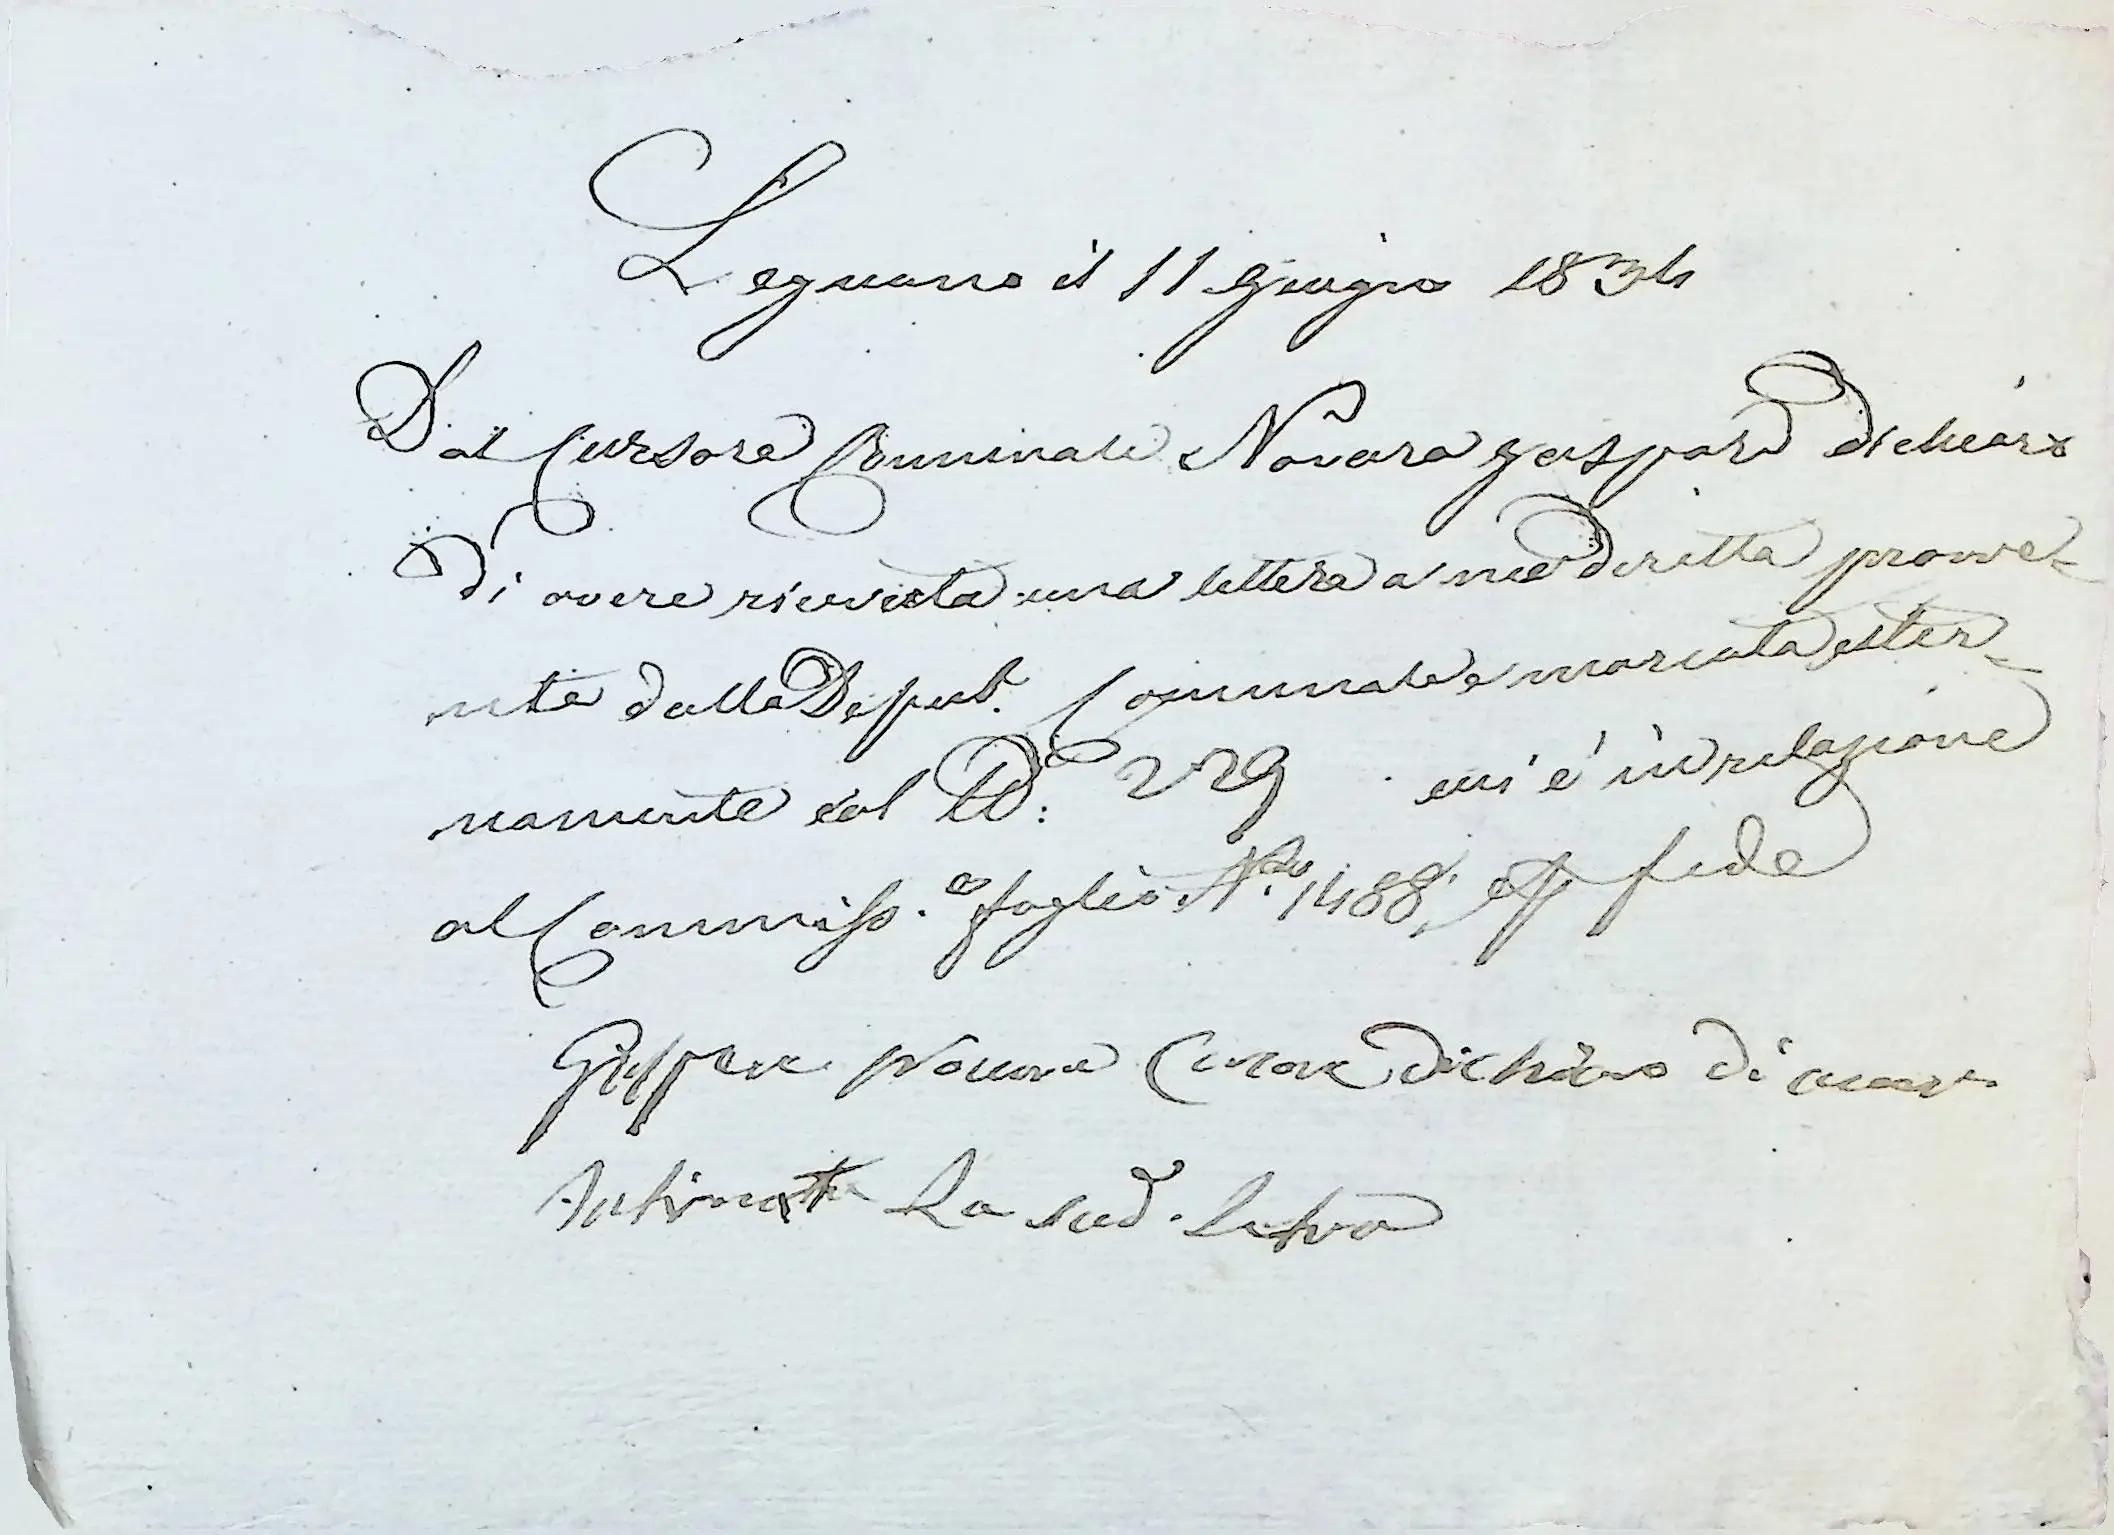 Legnano il 11 Giugno 1834
Dal Cursore Comunale Novara Gaspare dichiaro
di avere ricevuta una lettera a me diretta prove-
nte dalla Deput. Comunale e marcata ester-
namente col N: 229 cui è in relazione
al Commiss. foglio N. 1488, fede
Gaspere Novara Cursore dichiaro di aver
Intimatta La sud. Letra